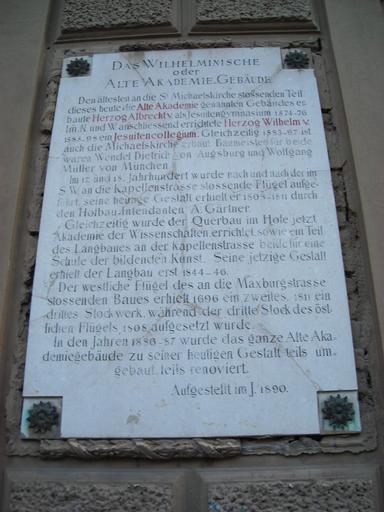 DAS WILHELMINISCHE
oder
ALTE AKADEMIE-GEBÄUDE.
Den ältesten an die St. Michaelskirche stossenden Teil
dieses heute die Alte Akademie genannten Gebäudes er-
baute Herzog Albrecht V. als Jesuitengymnasium 1574-76.
Im N. und W. anschliessend errichtete Herzog Wilhelm V.
1585-98 ein Jesuitencollegium. Gleichzeitig 1583-97 ist
auch die Michaelskirche erbaut. Baumeister für beide
waren Wendel Dietrich von Augsburg und Wolfgang
Müller von München.
Im 17. und 18. Jahrhundert wurde nach und nach der im
S.W. an die Kapellenstrasse stossende Flügel aufge-
führt, seine heutige Gestalt erhielt er 1803-1811 durch
den Hofbau-Intendanten A. Gärtner.
Gleichzeitig wurde der Querbau im Hofe jetzt
Akademie der Wissenschaften errichtet, sowie ein Teil
des Langbaues an der Kapellenstrasse beide für eine
Schule der bildenden Kunst. Seine jetzige Gestalt
erhielt der Langbau erst 1844-46.
Der westliche Flügel des an die Maxburgstrasse
stossenden Baues erhielt 1696 ein zweites, 1811 ein
drittes Stockwerk, während der dritte Stock des öst-
lichen Flügels 1808 aufgesetzt wurde.
In den Jahren 1886-87 wurde das ganze Alte Aka-
demiegebäude zu seiner heutigen Gestalt teils um-
gebaut, teils renoviert.
Aufgestellt im J. 1890.